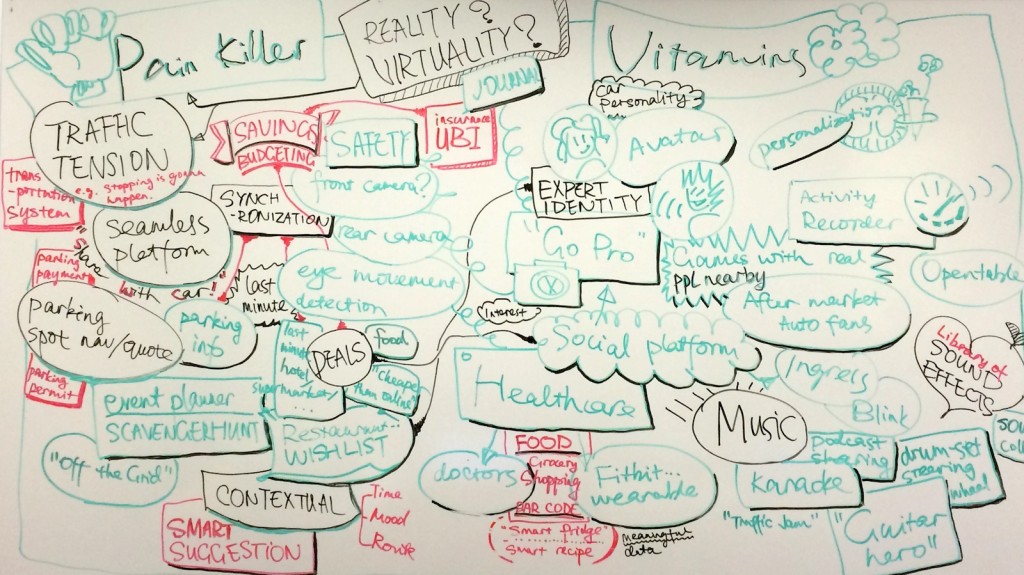 Pain Killer
REALITY?
VIRTUALITY?
JOURNAL
Vitamins
TRAFFIC
TENSION
e.g. stopping is gonna
happen.
trans
-portation
System
SAVINGS
BUDGETING
SAFETY
insurance
UBI
car
Personality
Avatar
personalization
front camera?
SYNCH
-RONIZATION
seamless
platform
rear camera
EXPERT
IDENTITY
"Go Pro"
Activity
Recorder
parking
payment
with car!
"last
minute
eye movement
detection
Games with real
ppl nearby
Opentable
parking
spot nav/quote
parking
info
Interest
After market
Auto fans
last
minute
hotel
supermarket/
...
DEALS
food
"cheaper
than online"
Social platform
Library of
SOUND
EFFECTS
parking
permit
Healthcare
Ingress
Blink
event planner
SCAVENGERHUNT
Restaurant...
WISHLIST
Music
FOOD
Grocery
Shopping
BAR CODE
"Smart fridge"
smart recipe
doctors
Fitbit...
wearable
meaningful
data
podcast
sharing
drum-set
steering
wheel
"Off the Grid"
CONTEXTUAL
Time
Mood
Route
Karaoke
"Traffic Jam"
"Guitar
hero"
SMART
SUGGESTION